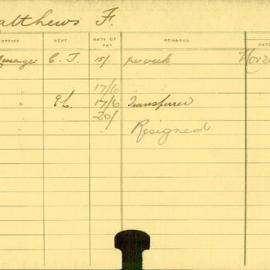 atthews F.
OFFICE DEPT. RATE OF PAY REMARKS DATE
Messenger C. T. 15/- per week Nov 2
17/6
" P.L. 17/6 Transferred
" 20/-
Resigned